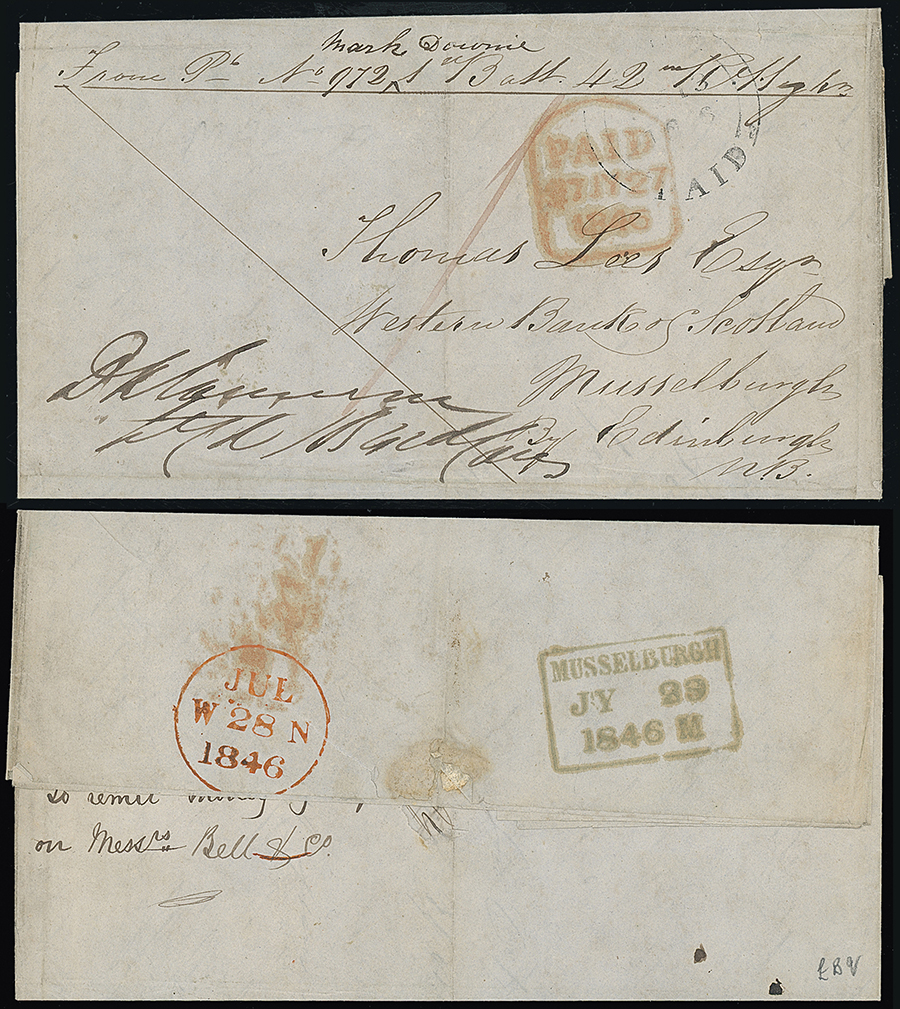 Mark Downie
From Pte No 972 1st Batt. 42nd Rl Highrs
PAID
PAID
27 JY 27
1846
Thomas Lees Esqr
Western Bank of Scotland
Musselburgh
By Edinburgh
N.B.
JUL
W 28 N
1846
MUSSELBURGH
JY 29
1846 M
to remit
on Messrs Bell & Co.
£BV